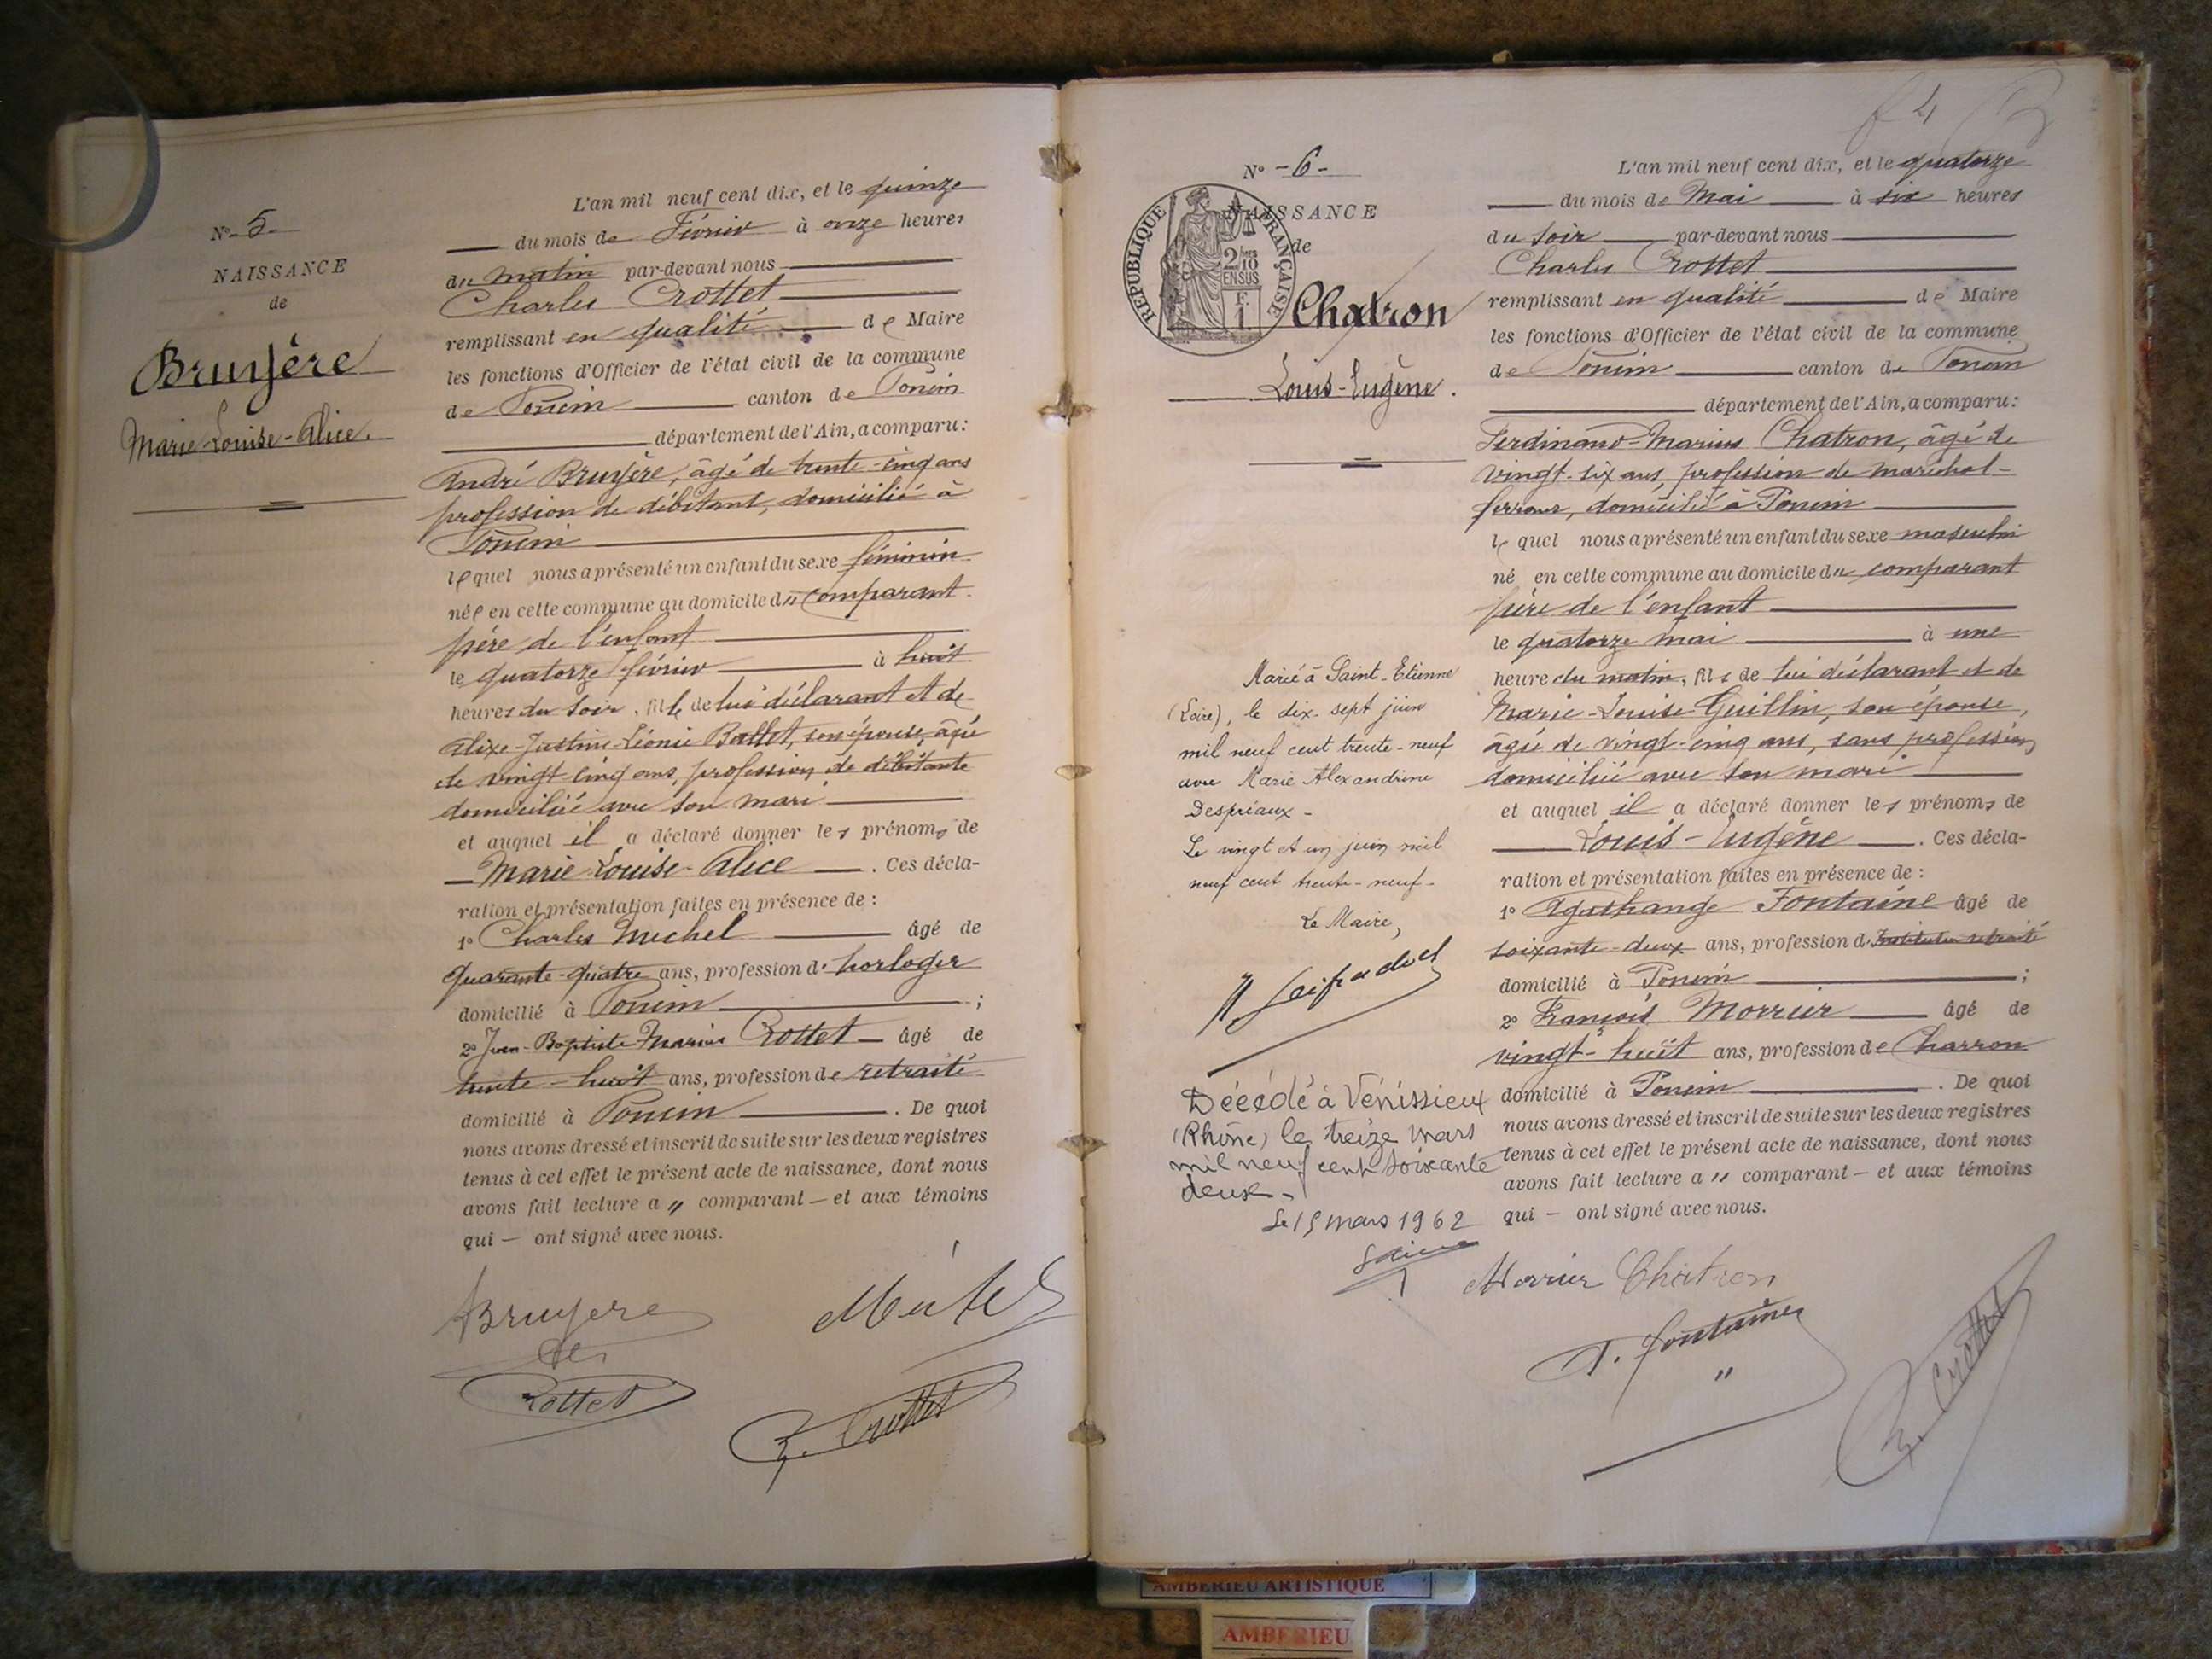 N° - 5 -
NAISSANCE
de
Bruyère
Marie-Louise-Alice.
L'an mil neuf cent dix, et le quinze
du mois de Février à onze heures
du matin par-devant nous
Charles Crottet
remplissant en qualité de Maire
les fonctions d'Officier de l'état civil de la commune
de Poncin canton de Poncin
département de l'Ain, a comparu:
André Bruyère, âgé de trente-cinq ans
profession de débitant, domicilié à
Poncin
lequel nous a présenté un enfant du sexe féminin
née en cette commune au domicile du comparant
père de l'enfant
le quatorze février à huit
heures du soir, fille de lui déclarant et de
Alixe-Justine-Léonie Ballet, son épouse, âgée
de vingt-cinq ans, profession de débitante
domiciliée avec son mari
et auquel il a déclaré donner les prénoms de
Marie-Louise-Alice. Ces décla-
ration et présentation faites en présence de :
1° Charles Michel âgé de
quarante-quatre ans, profession d'horloger
domicilié à Poncin ;
2° Jean-Baptiste-Marius Crottet âgé de
trente-huit ans, profession de retraité
domicilié à Poncin. De quoi
nous avons dressé et inscrit de suite sur les deux registres
tenus à cet effet le présent acte de naissance, dont nous
avons fait lecture a " comparant - et aux témoins
qui - ont signé avec nous.
Bruyere
Crottet
C. Crottet
4
N° - 6 -
NAISSANCE
de
REPUBLIQUE FRANÇAISE
2/10
EN SUS
F.
1.
Chatron
Louis-Eugène.
L'an mil neuf cent dix, et le quatorze
du mois de Mai à six heures
du soir par-devant nous
Charles Crottet
remplissant en qualité de Maire
les fonctions d'Officier de l'état civil de la commune
de Poncin canton de Poncin
département de l'Ain, a comparu:
Ferdinand-Marius Chatron, âgé de
vingt-six ans, profession de maréchal-
ferrant, domicilié à Poncin
lequel nous a présenté un enfant du sexe masculin
né en cette commune au domicile du comparant
père de l'enfant
le quatorze mai à une
heure du matin, fils de lui déclarant et de
Marie-Louise Guillin, son épouse,
âgée de vingt-cinq ans, sans profession,
domiciliée avec son mari
et auquel il a déclaré donner les prénoms de
Louis-Eugène. Ces décla-
ration et présentation faites en présence de :
1° Agathange Fontaine âgé de
soixante-deux ans, profession d'Instituteur retraité
domicilié à Poncin ;
2° François Morrier âgé de
vingt-huit ans, profession de Charron
domicilié à Poncin. De quoi
nous avons dressé et inscrit de suite sur les deux registres
tenus à cet effet le présent acte de naissance, dont nous
avons fait lecture a " comparant - et aux témoins
qui - ont signé avec nous.
Marié à Saint-Etienne
(Loire), le dix-sept juin
mil neuf cent trente-neuf
avec Marie Alexandrine
Despréaux -
Le vingt et un juin mil
neuf cent trente-neuf -
Le Maire,
Décédé à Vénissieux
(Rhône) le treize mars
mil neuf cent soixante
deux -
Le 15 mars 1962
Morrier Chatron
A. Fontaine
C. Crottet
AMBERIEU ARTISTIQUE
AMBERIEU